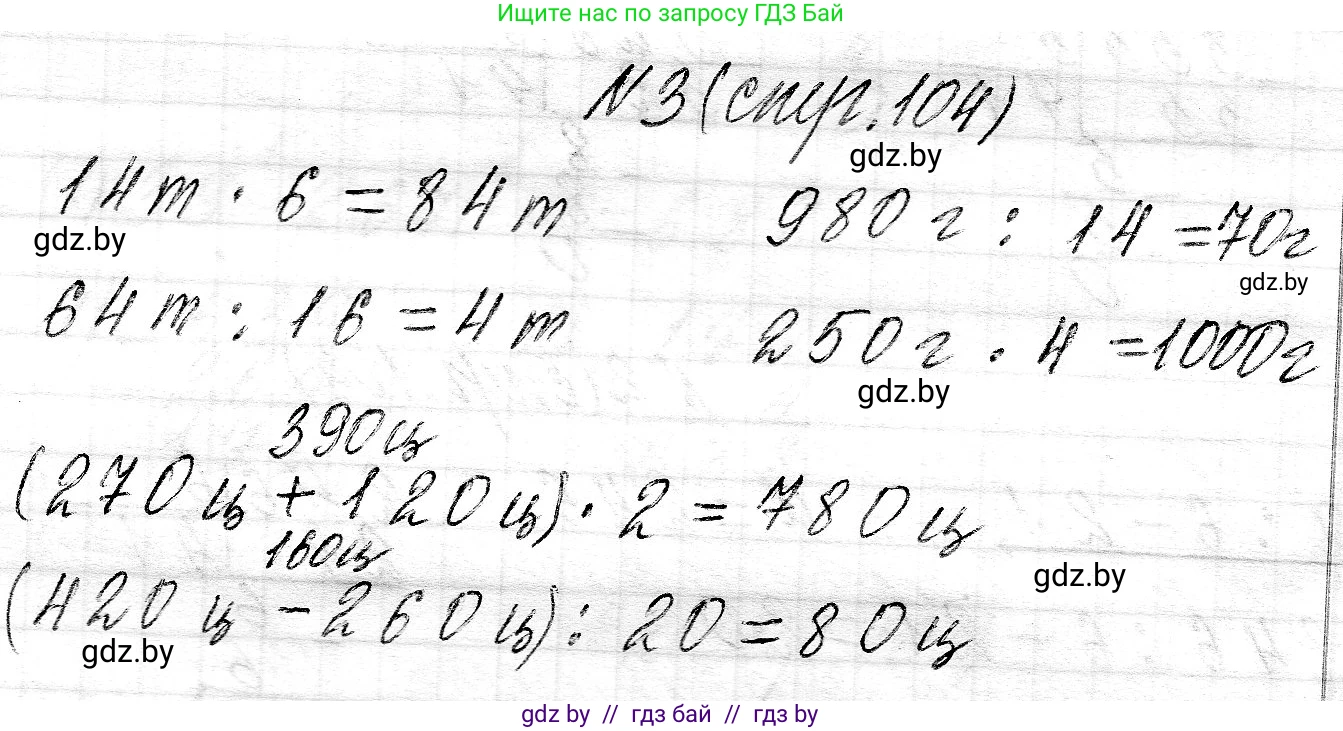 Ищите нас по запросу ГДЗ Бай
N3 (стр. 104)
gdz.by
14 т · 6 = 84 т
980 г : 14 = 70 г
gdz.by
gdz.by
64 т : 16 = 4 т
250 г · 4 = 1000 г
gdz.by
390 ц
(270 ц + 120 ц) · 2 = 780 ц
160 ц
gdz.by
(420 ц - 260 ц) : 20 = 80 ц
gdz.by
gdz by // гдз бай // гдз by